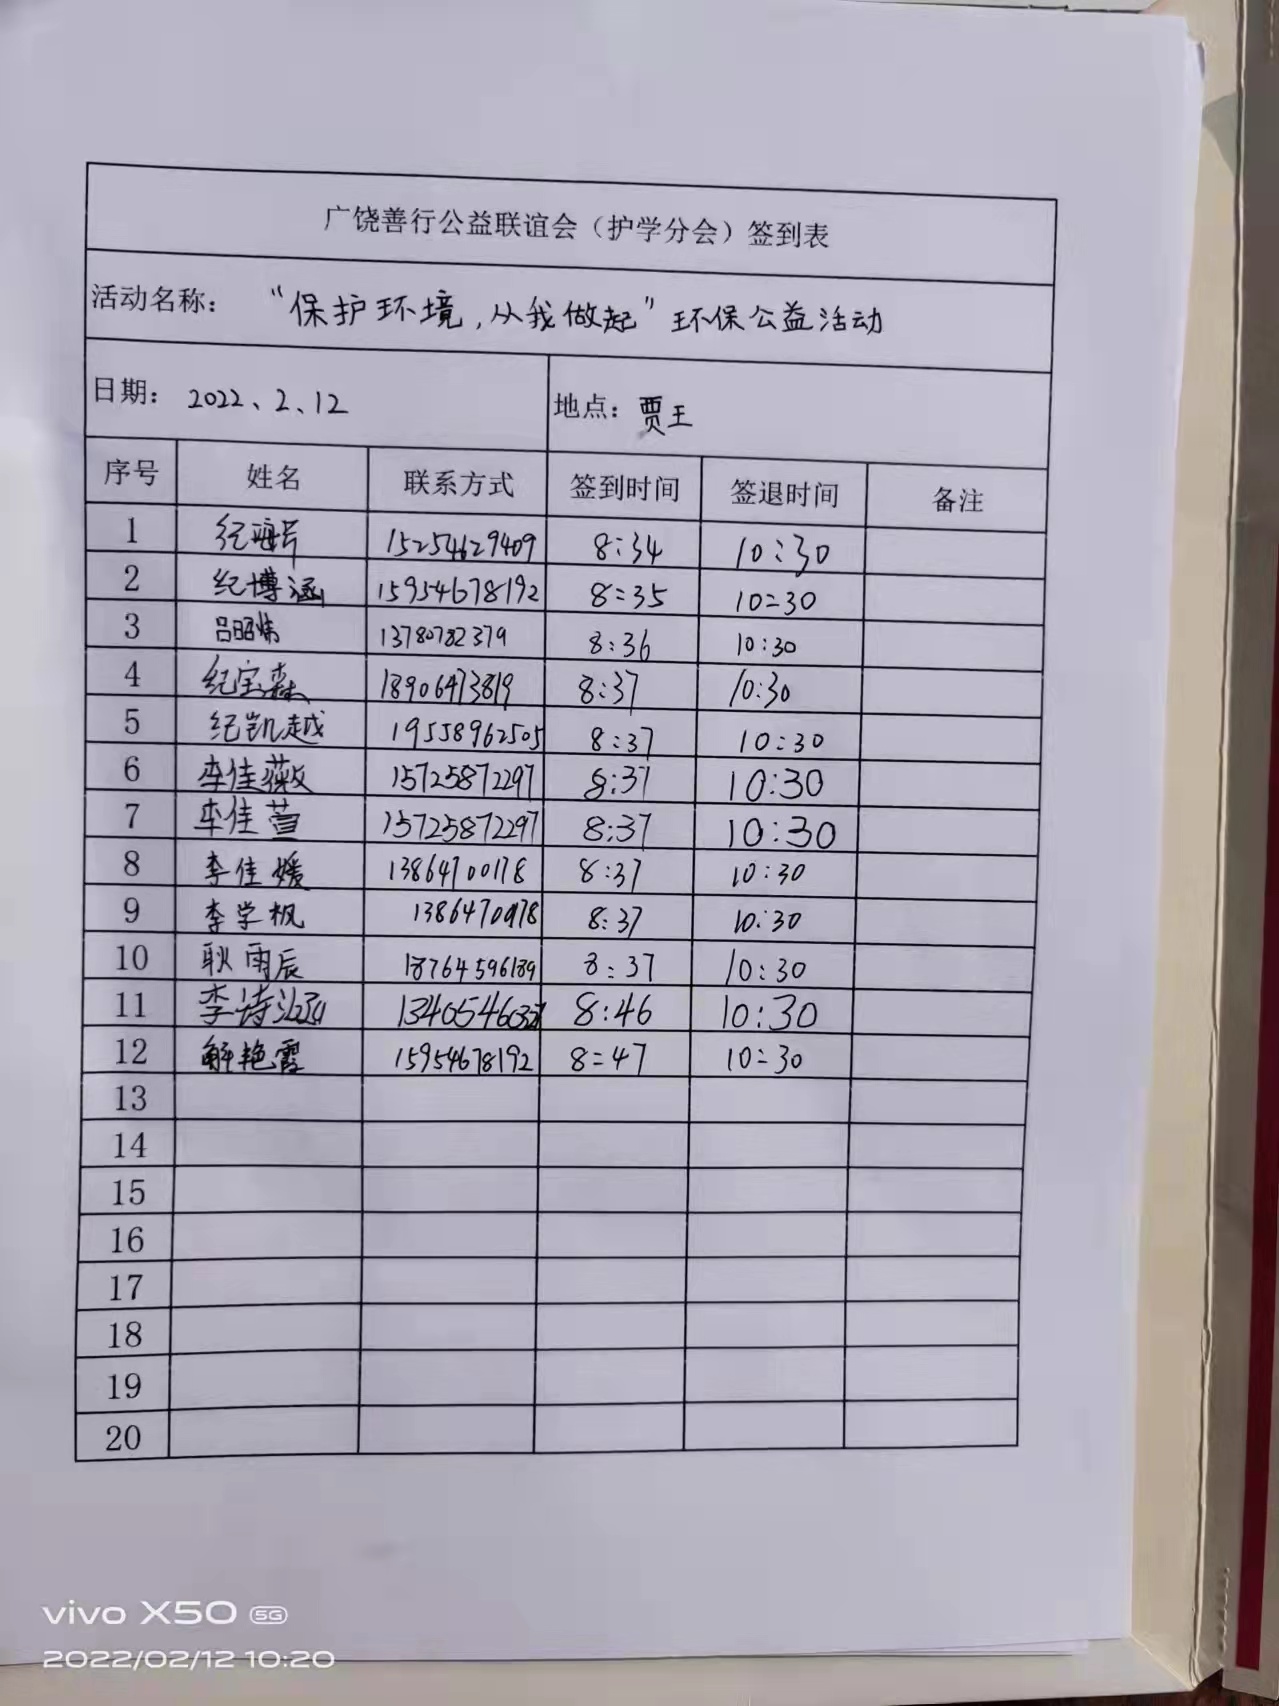 广饶善行公益联谊会（护学分会）签到表
活动名称： “保护环境，从我做起”环保公益活动
日期： 2022、2、12 地点：贾王
序号 姓名 联系方式 签到时间 签退时间 备注
1 纪 15254629409 8:34 10:30
2 纪博涵 15954678192 8:35 10:30
3 吕昭炜 13780782379 8:36 10:30
4 纪宝森 18906473819 8:37 10:30
5 纪凯越 19558962505 8:37 10:30
6 李佳薇 15725872297 8:37 10:30
7 李佳萱 15725872297 8:37 10:30
8 李佳媛 13864700178 8:37 10:30
9 李学枫 8:37 10:30
10 耿雨辰 18764596189 8:37 10:30
11 李诗涵 8:46 10:30
12 解艳霞 15954678192 8:47 10:30
13
14
15
16
17
18
19
20
vivo X50 5G
2022/02/12 10:20